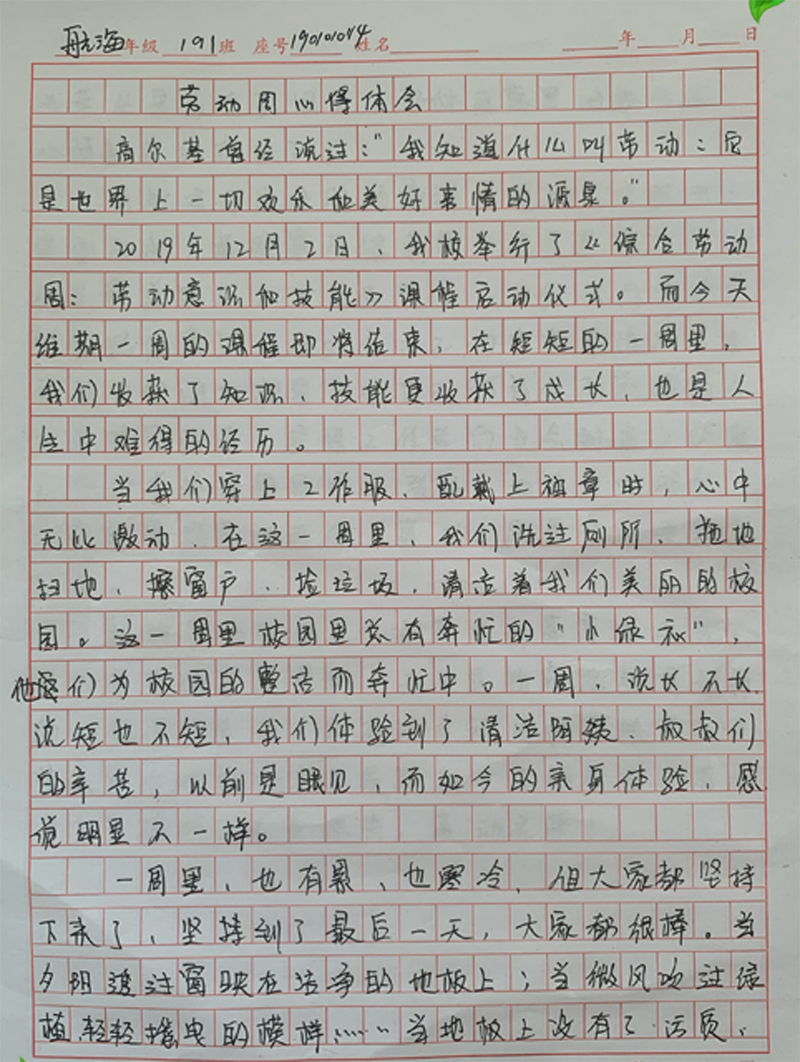 航海年级 191班 座号19010104 姓名 年 月 日
劳动周心得体会
高尔基曾经说过:"我知道什么叫劳动:它
是世界上一切欢乐和美好事情的源泉。"
2019年12月2日,我校举行了《综合劳动
周:劳动意识和技能》课程启动仪式。而今天
维期一周的课程即将结束,在短短的一周里,
我们收获了知识、技能更收获了成长,也是人
生中难得的经历。
当我们穿上工作服,配戴上袖章时,心中
无比激动,在这一周里,我们洗过厕所、拖地
扫地、擦窗户、捡垃圾,清洁着我们美丽的校
园。这一周里校园里总有奔忙的"小绿衣",
他们为校园的整洁而奔忙中。一周,说长不长
说短也不短,我们体验到了清洁阿姨、叔叔们
的辛苦,以前是眼见,而如今的亲身体验,感
觉明显不一样。
一周里,也有累,也寒冷,但大家都坚持
下来了,坚持到了最后一天,大家都很棒。当
夕阳透过窗映在洁净的地板上;当微风吹过绿
植,轻轻摇曳的模样……当地板上没有了污质,